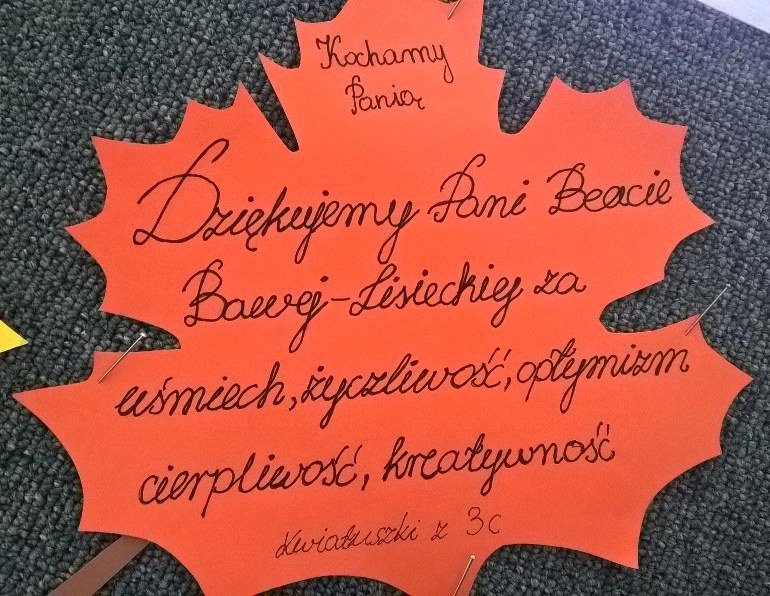 Kochamy
Panią
Dziękujemy Pani Beacie
Bawej-Lisieckiej za
uśmiech, życzliwość, optymizm
cierpliwość, kreatywność
Kwiatuszki z 3c